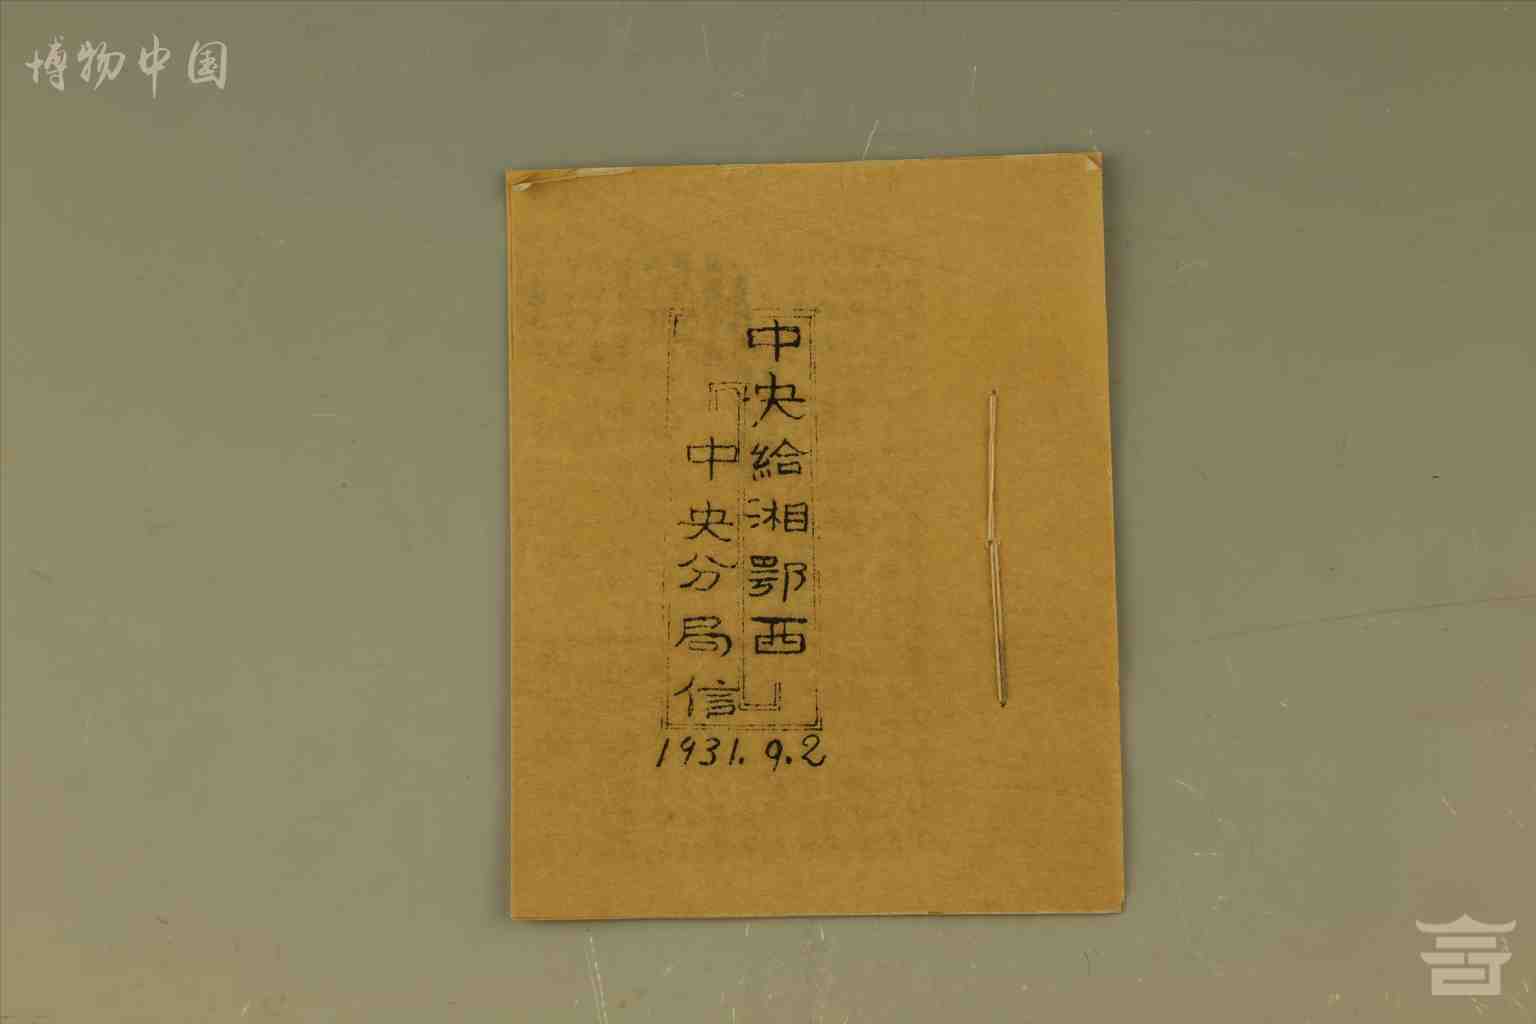 博物中国
中央給湘鄂西
中央分局信
1931.9.2